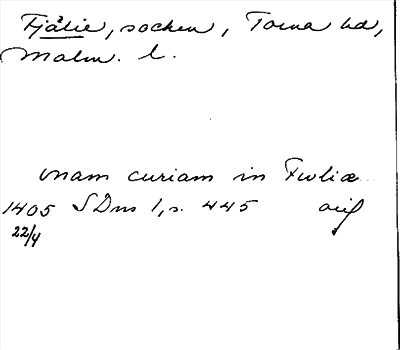 Fjälie, socken, Torna hd,
Malm. l.
unam curiam in Fivliæ
1405 SDns 1, s. 445 orig
22/4